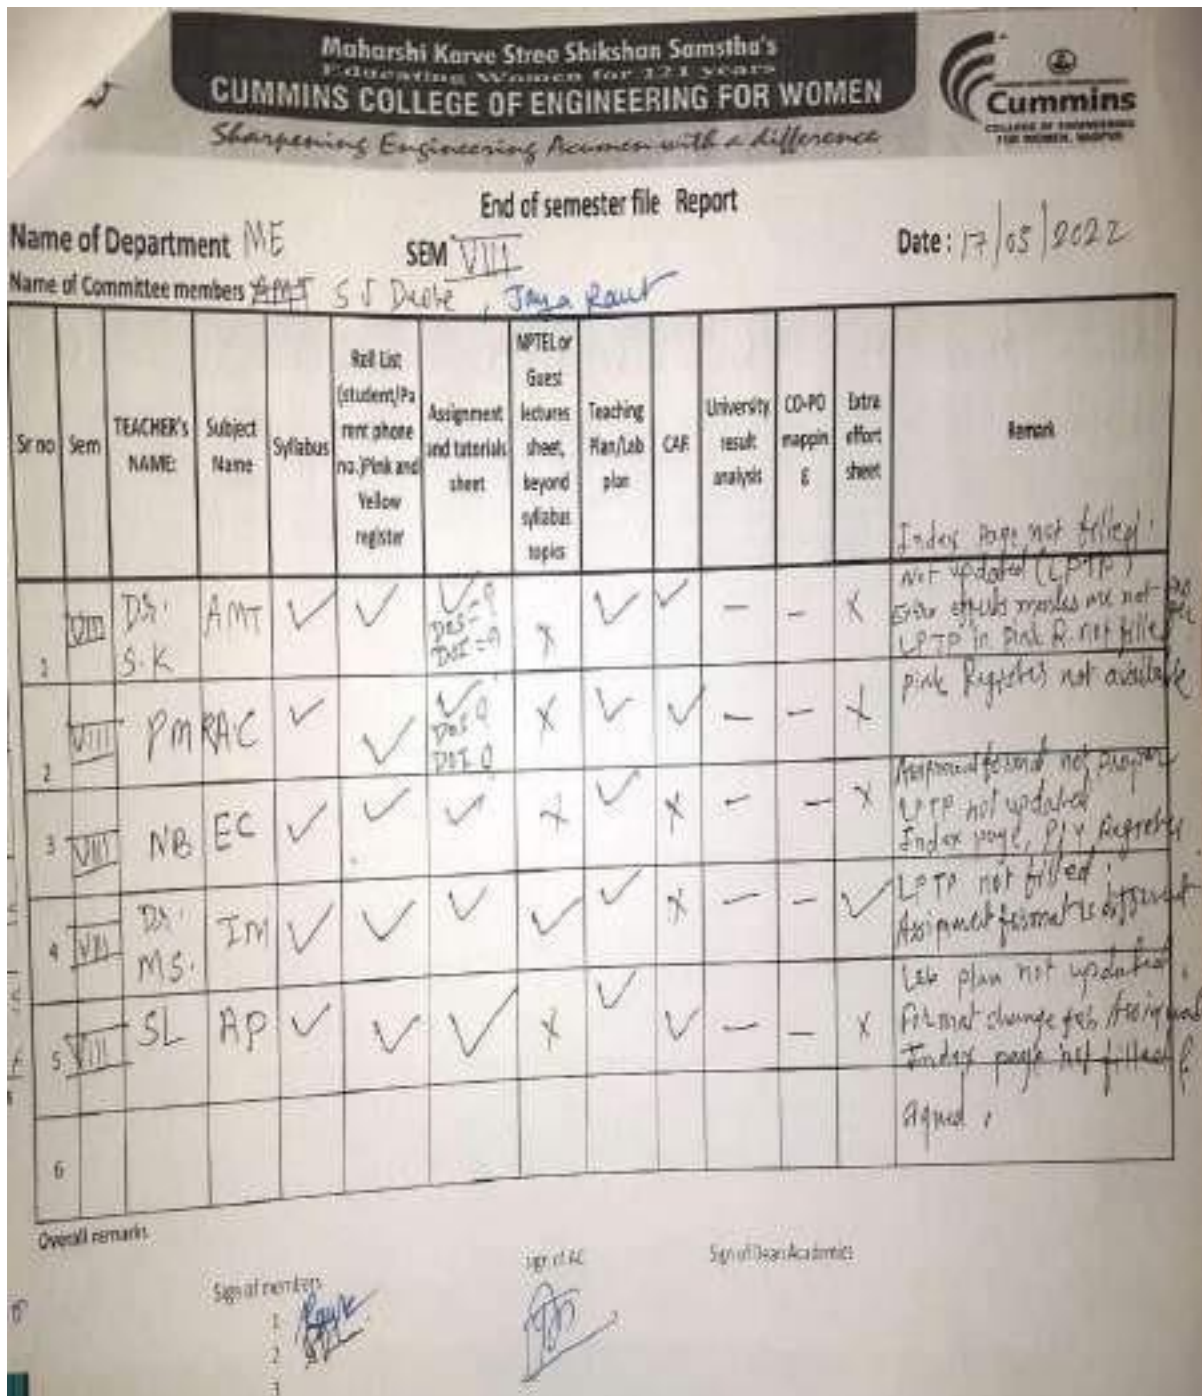 Maharshi Karve Stree Shikshan Samstha's
Educating Women for 121 years
CUMMINS COLLEGE OF ENGINEERING FOR WOMEN
Sharpening Engineering Acumen with a difference
Cummins
COLLEGE OF ENGINEERING
FOR WOMEN, NAGPUR
End of semester file Report
Name of Department ME SEM VIII Date : 17/05/2022
Name of Committee members S J Deote , Jaya Raut
Sr no Sem TEACHER's NAME: Subject Name Syllabus Roll List (student/Parent phone no.)Pink and Yellow register Assignment and tutorials sheet NPTEL or Guest lectures sheet, beyond syllabus topics Teaching Plan/Lab plan CAR University result analysis CO-PO mapping Extra effort sheet Remark
Index page not filled.
1 VIII Dr. S.K AMT ✓ ✓ ✓ DOS = ? DOI = ? X ✓ ✓ – – X
Not updated (LPTP)
Extra efforts marks are not
LPTP in Pink R. not filled
2 VIII PM RAC ✓ ✓ ✓ DOS ? DOI ? X ✓ ✓ – – X
Pink Register not available
3 VIII NB EC ✓ ✓ ✓ X ✓ X – – X
Assignment format not proper
LPTP not updated
Index page, P/Y Register
4 VIII Dr. MS. IM ✓ ✓ ✓ ✓ ✓ X – – ✓
LPTP not filled.
Assignment format is different
5 VIII SL AP ✓ ✓ ✓ X ✓ ✓ – – X
Lab plan not updated.
Format change for Assignment
Index page not filled &
signed .
6
Overall remarks
Sign of members sign of AC Sign of Dean Academics
1
2
3